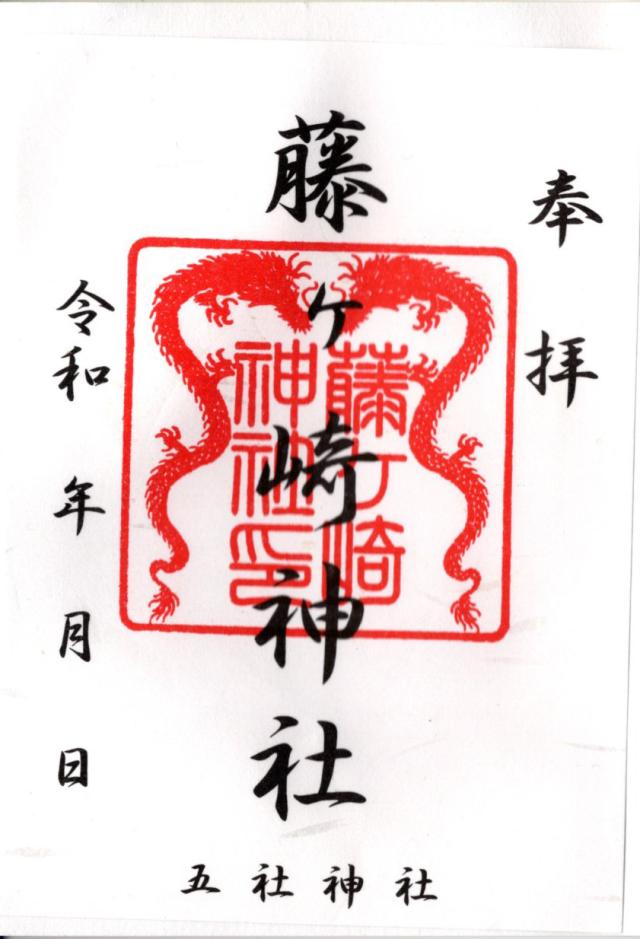 奉拝
藤ヶ崎神社
藤ケ崎
神社印
令和 年 月 日
五社神社